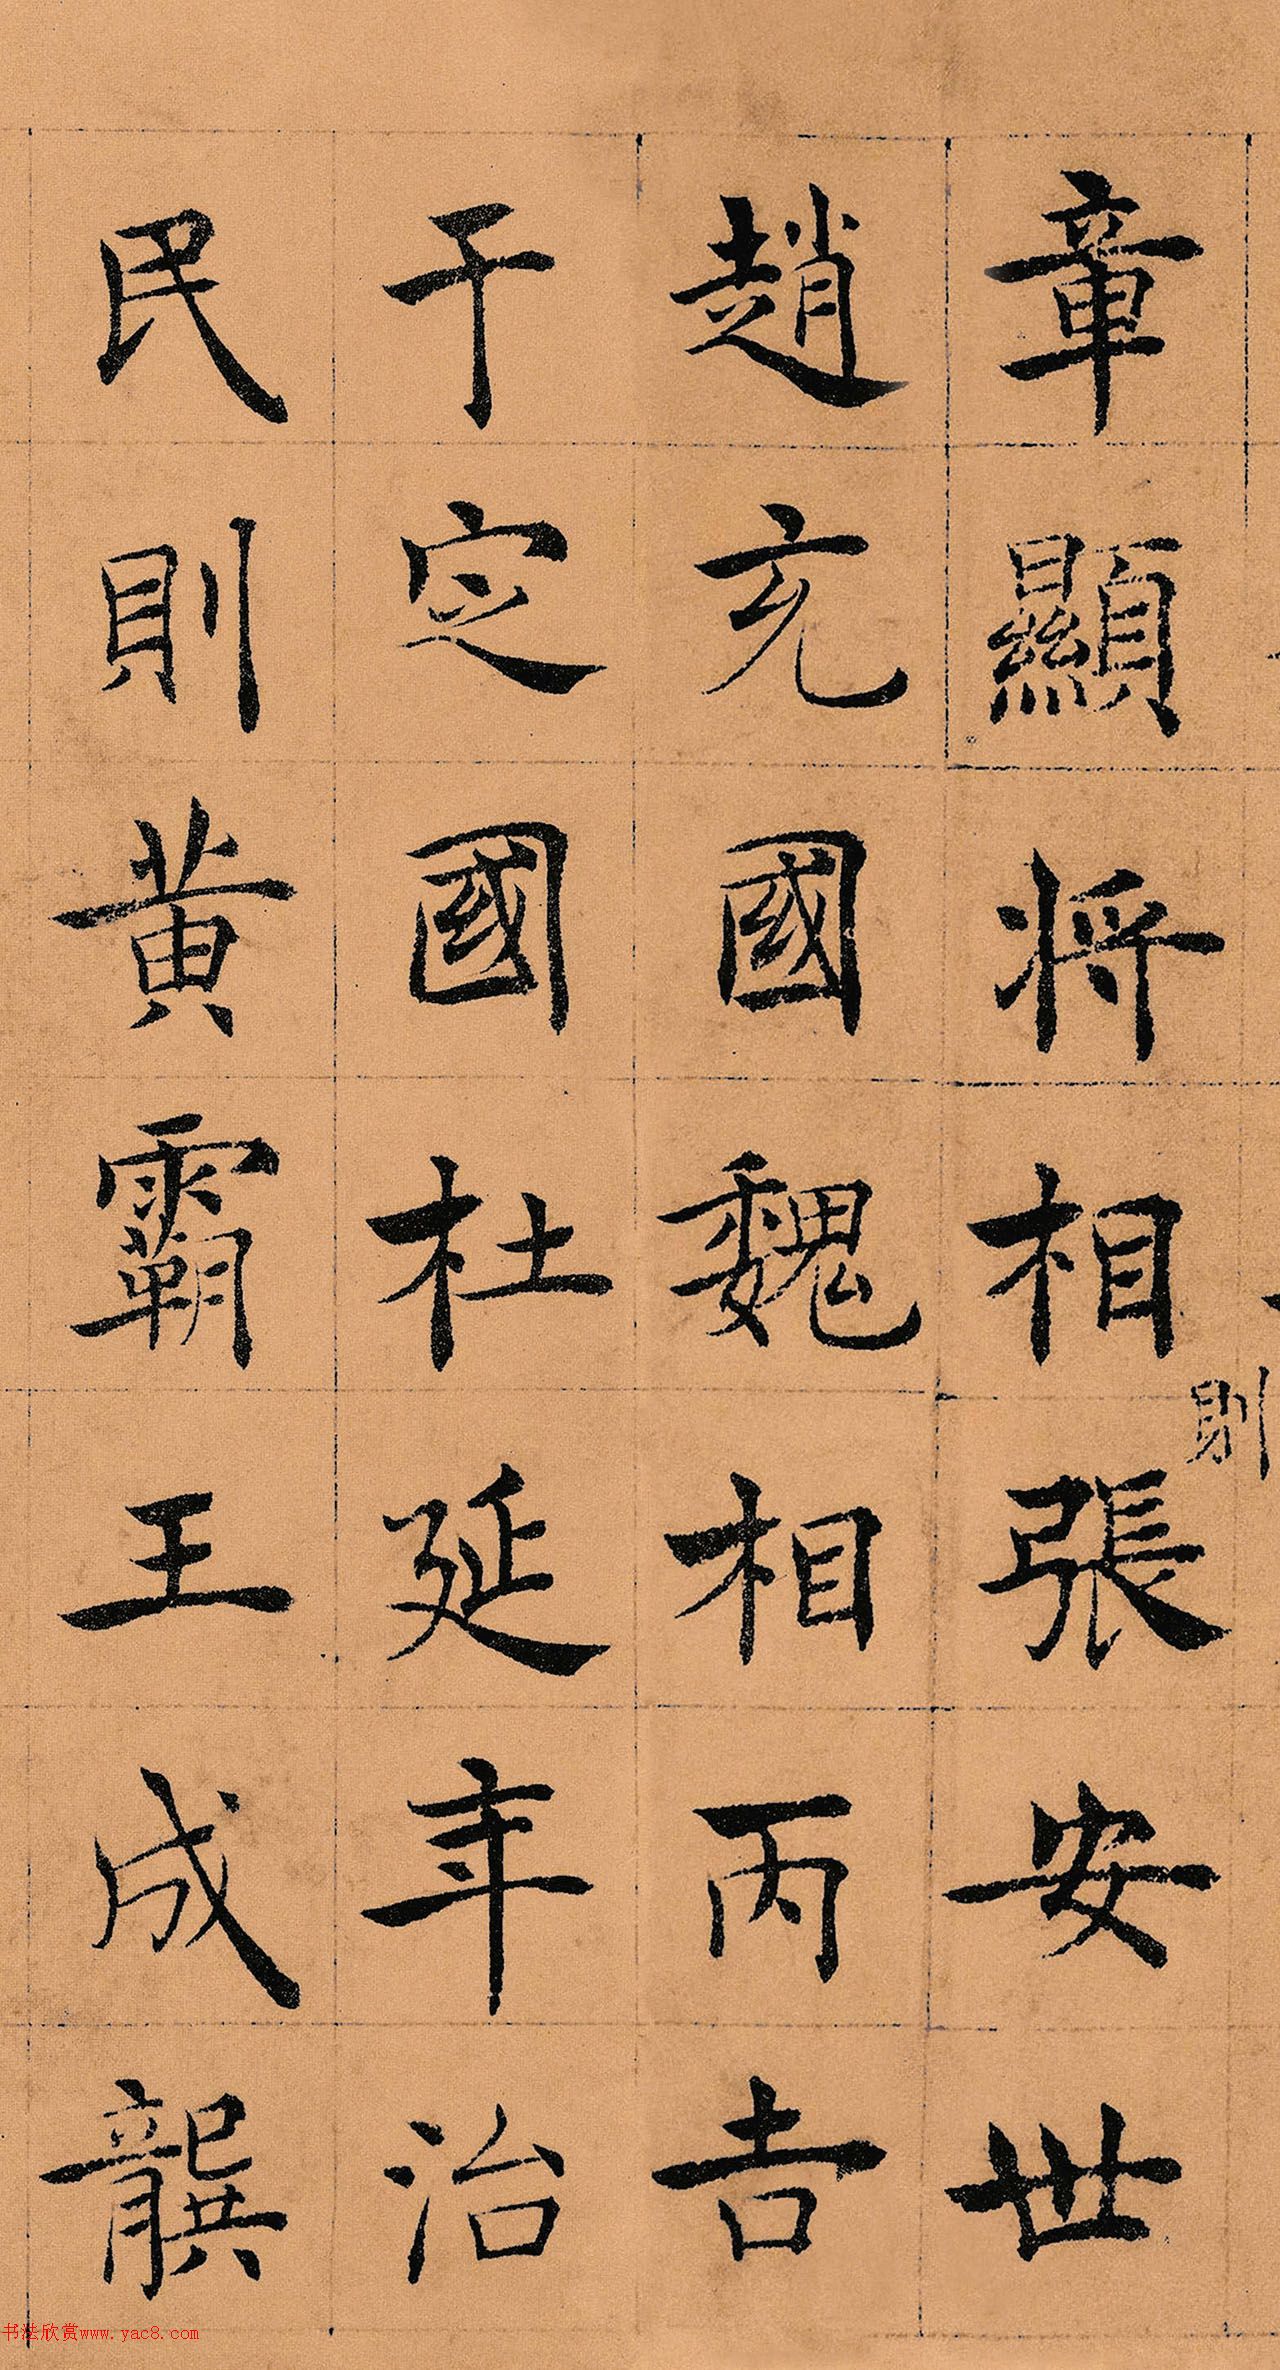 章顯將相張安世
則
趙充國魏相丙吉
于定國杜延年治
民則黃霸王成龔
书法欣赏www.yac8.com